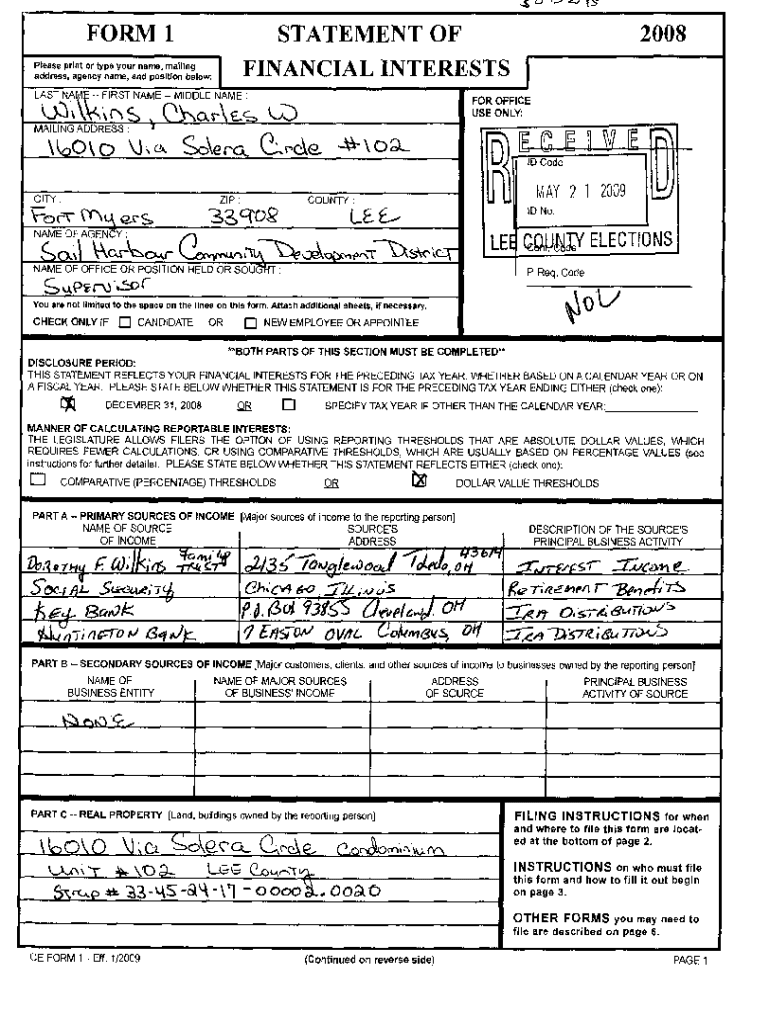 FORM 1 STATEMENT OF 2008
FINANCIAL INTERESTS
Please print or type your name, mailing
address, agency name, and position below:
LAST NAME -- FIRST NAME -- MIDDLE NAME :
Wilkins, Charles W
MAILING ADDRESS :
16010 Via Solera Circle #102
CITY : ZIP : COUNTY :
Fort Myers 33908 LEE
NAME OF AGENCY :
Sail Harbour Community Development District
NAME OF OFFICE OR POSITION HELD OR SOUGHT :
Supervisor
You are not limited to the space on the lines on this form. Attach additional sheets, if necessary.
CHECK ONLY IF CANDIDATE OR NEW EMPLOYEE OR APPOINTEE
FOR OFFICE
USE ONLY:
RECEIVED
ID Code
MAY 21 2009
ID No.
LEE COUNTY ELECTIONS
Conf. Code
P Req. Code
**BOTH PARTS OF THIS SECTION MUST BE COMPLETED**
DISCLOSURE PERIOD:
THIS STATEMENT REFLECTS YOUR FINANCIAL INTERESTS FOR THE PRECEDING TAX YEAR, WHETHER BASED ON A CALENDAR YEAR OR ON
A FISCAL YEAR. PLEASE STATE BELOW WHETHER THIS STATEMENT IS FOR THE PRECEDING TAX YEAR ENDING EITHER (check one):
DECEMBER 31, 2008 OR SPECIFY TAX YEAR IF OTHER THAN THE CALENDAR YEAR:
MANNER OF CALCULATING REPORTABLE INTERESTS:
THE LEGISLATURE ALLOWS FILERS THE OPTION OF USING REPORTING THRESHOLDS THAT ARE ABSOLUTE DOLLAR VALUES, WHICH
REQUIRES FEWER CALCULATIONS, OR USING COMPARATIVE THRESHOLDS, WHICH ARE USUALLY BASED ON PERCENTAGE VALUES (see
instructions for further details). PLEASE STATE BELOW WHETHER THIS STATEMENT REFLECTS EITHER (check one):
COMPARATIVE (PERCENTAGE) THRESHOLDS OR DOLLAR VALUE THRESHOLDS
PART A -- PRIMARY SOURCES OF INCOME [Major sources of income to the reporting person]
NAME OF SOURCE SOURCE'S DESCRIPTION OF THE SOURCE'S
OF INCOME ADDRESS PRINCIPAL BUSINESS ACTIVITY
Dorothy F. Wilkins Family Trust 2135 Tanglewood Toledo, OH 43614 Interest Income
Social Security Chicago, Illinois Retirement Benefits
Key Bank P.O. Box 93855 Cleveland, OH IRA Distributions
Huntington Bank 7 Easton Oval Columbus, OH IRA Distributions
PART B -- SECONDARY SOURCES OF INCOME [Major customers, clients, and other sources of income to businesses owned by the reporting person]
NAME OF NAME OF MAJOR SOURCES ADDRESS PRINCIPAL BUSINESS
BUSINESS ENTITY OF BUSINESS' INCOME OF SOURCE ACTIVITY OF SOURCE
None
PART C -- REAL PROPERTY [Land, buildings owned by the reporting person]
16010 Via Solera Circle Condominium
Unit #102 LEE County
Strap # 33-45-24-17-00002.0020
FILING INSTRUCTIONS for when
and where to file this form are locat-
ed at the bottom of page 2.
INSTRUCTIONS on who must file
this form and how to fill it out begin
on page 3.
OTHER FORMS you may need to
file are described on page 6.
CE FORM 1 - Eff. 1/2009 (Continued on reverse side) PAGE 1